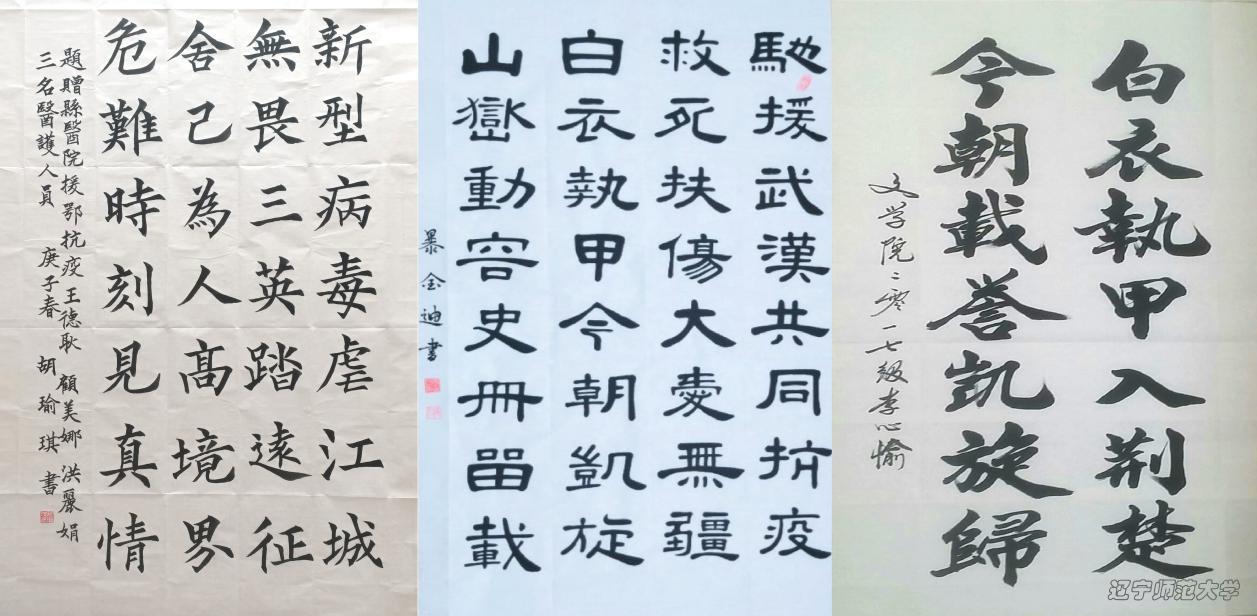 新型病毒虐江城
無畏三英踏遠征
舍己為人高境界
危難時刻見真情
題贈縣醫院援鄂抗疫王德耿 顧美娜 洪麗娟
三名醫護人員 庚子春 胡瑜琪 書
馳援武漢共同抗疫
救死扶傷大愛無疆
白衣執甲今朝凱旋
山嶽動容史冊留載
暴金迪书
白衣執甲入荆楚
今朝載誉凱旋歸
文学院二零一七级李心愉
辽宁师范大学